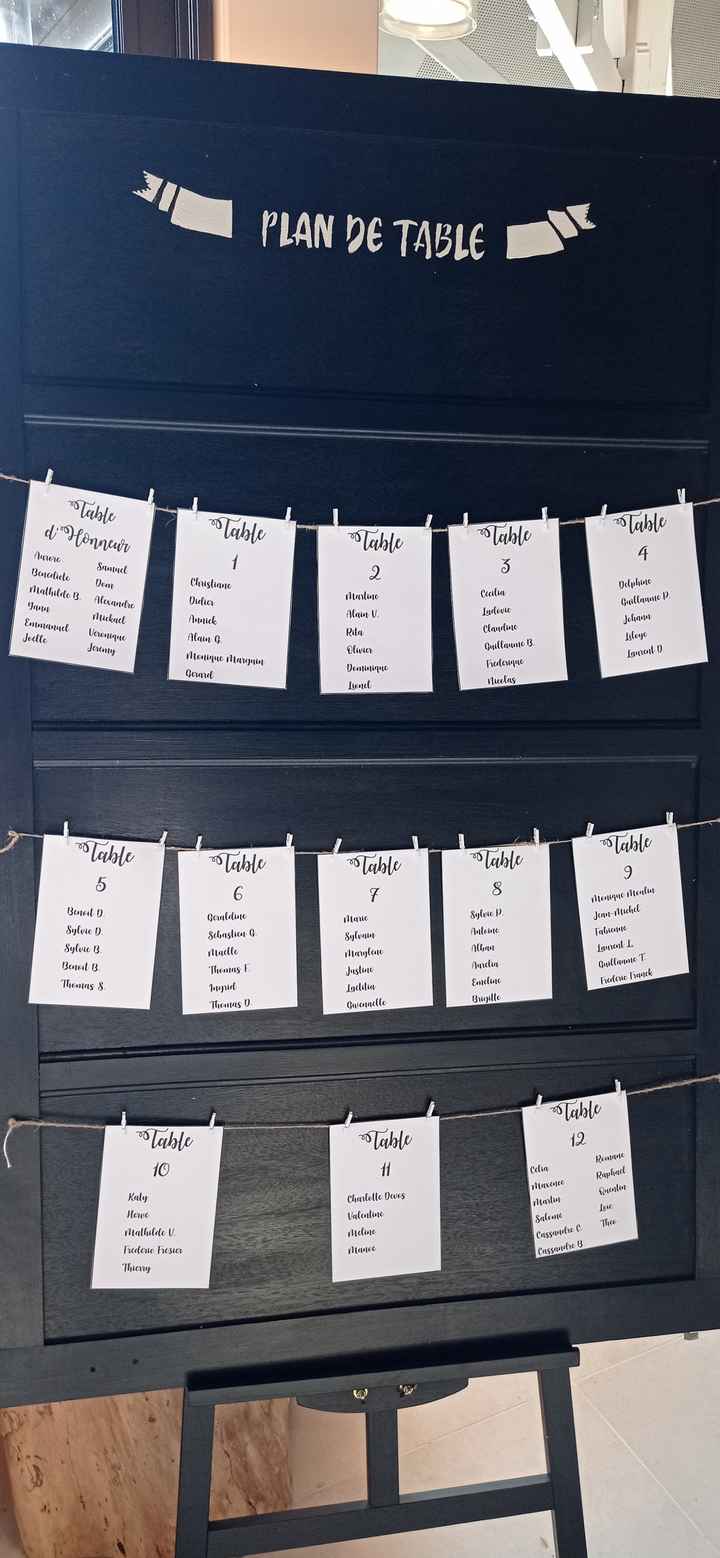 PLAN DE TABLE
Table
d'Honneur
Aurore
Benedicte
Mathilde B.
Yann
Emmanuel
Joelle
Samuel
Dom
Alexandre
Mickael
Veronique
Jeremy
Table
1
Christiane
Didier
Annick
Alain G.
Monique Marquin
Gerard
Table
2
Martine
Alain V.
Rita
Olivier
Dominique
Lionel
Table
3
Cecilia
Ludovic
Claudine
Guillaume B.
Frederique
Nicolas
Table
4
Delphine
Guillaume P.
Johann
Laurent D.
Table
5
Benoit D.
Sylvie D.
Sylvie B.
Benoit B.
Thomas S.
Table
6
Geraldine
Sebastien G.
Maelle
Thomas F.
Ingrid
Thomas D.
Table
7
Marie
Sylvain
Marylene
Justine
Laetitia
Gwenaelle
Table
8
Sylvie P.
Antoine
Alban
Aurelia
Emeline
Brigitte
Table
9
Monique Moulin
Jean-Michel
Fabienne
Laurent L.
Guillaume T.
Frederic Franck
Table
10
Katy
Herve
Mathilde V.
Frederic Frosier
Thierry
Table
11
Charlotte Devos
Valentine
Meline
Manoe
Table
12
Celia
Maxence
Martin
Salome
Cassandre C.
Cassandre B.
Romane
Raphael
Quentin
Loic
Theo